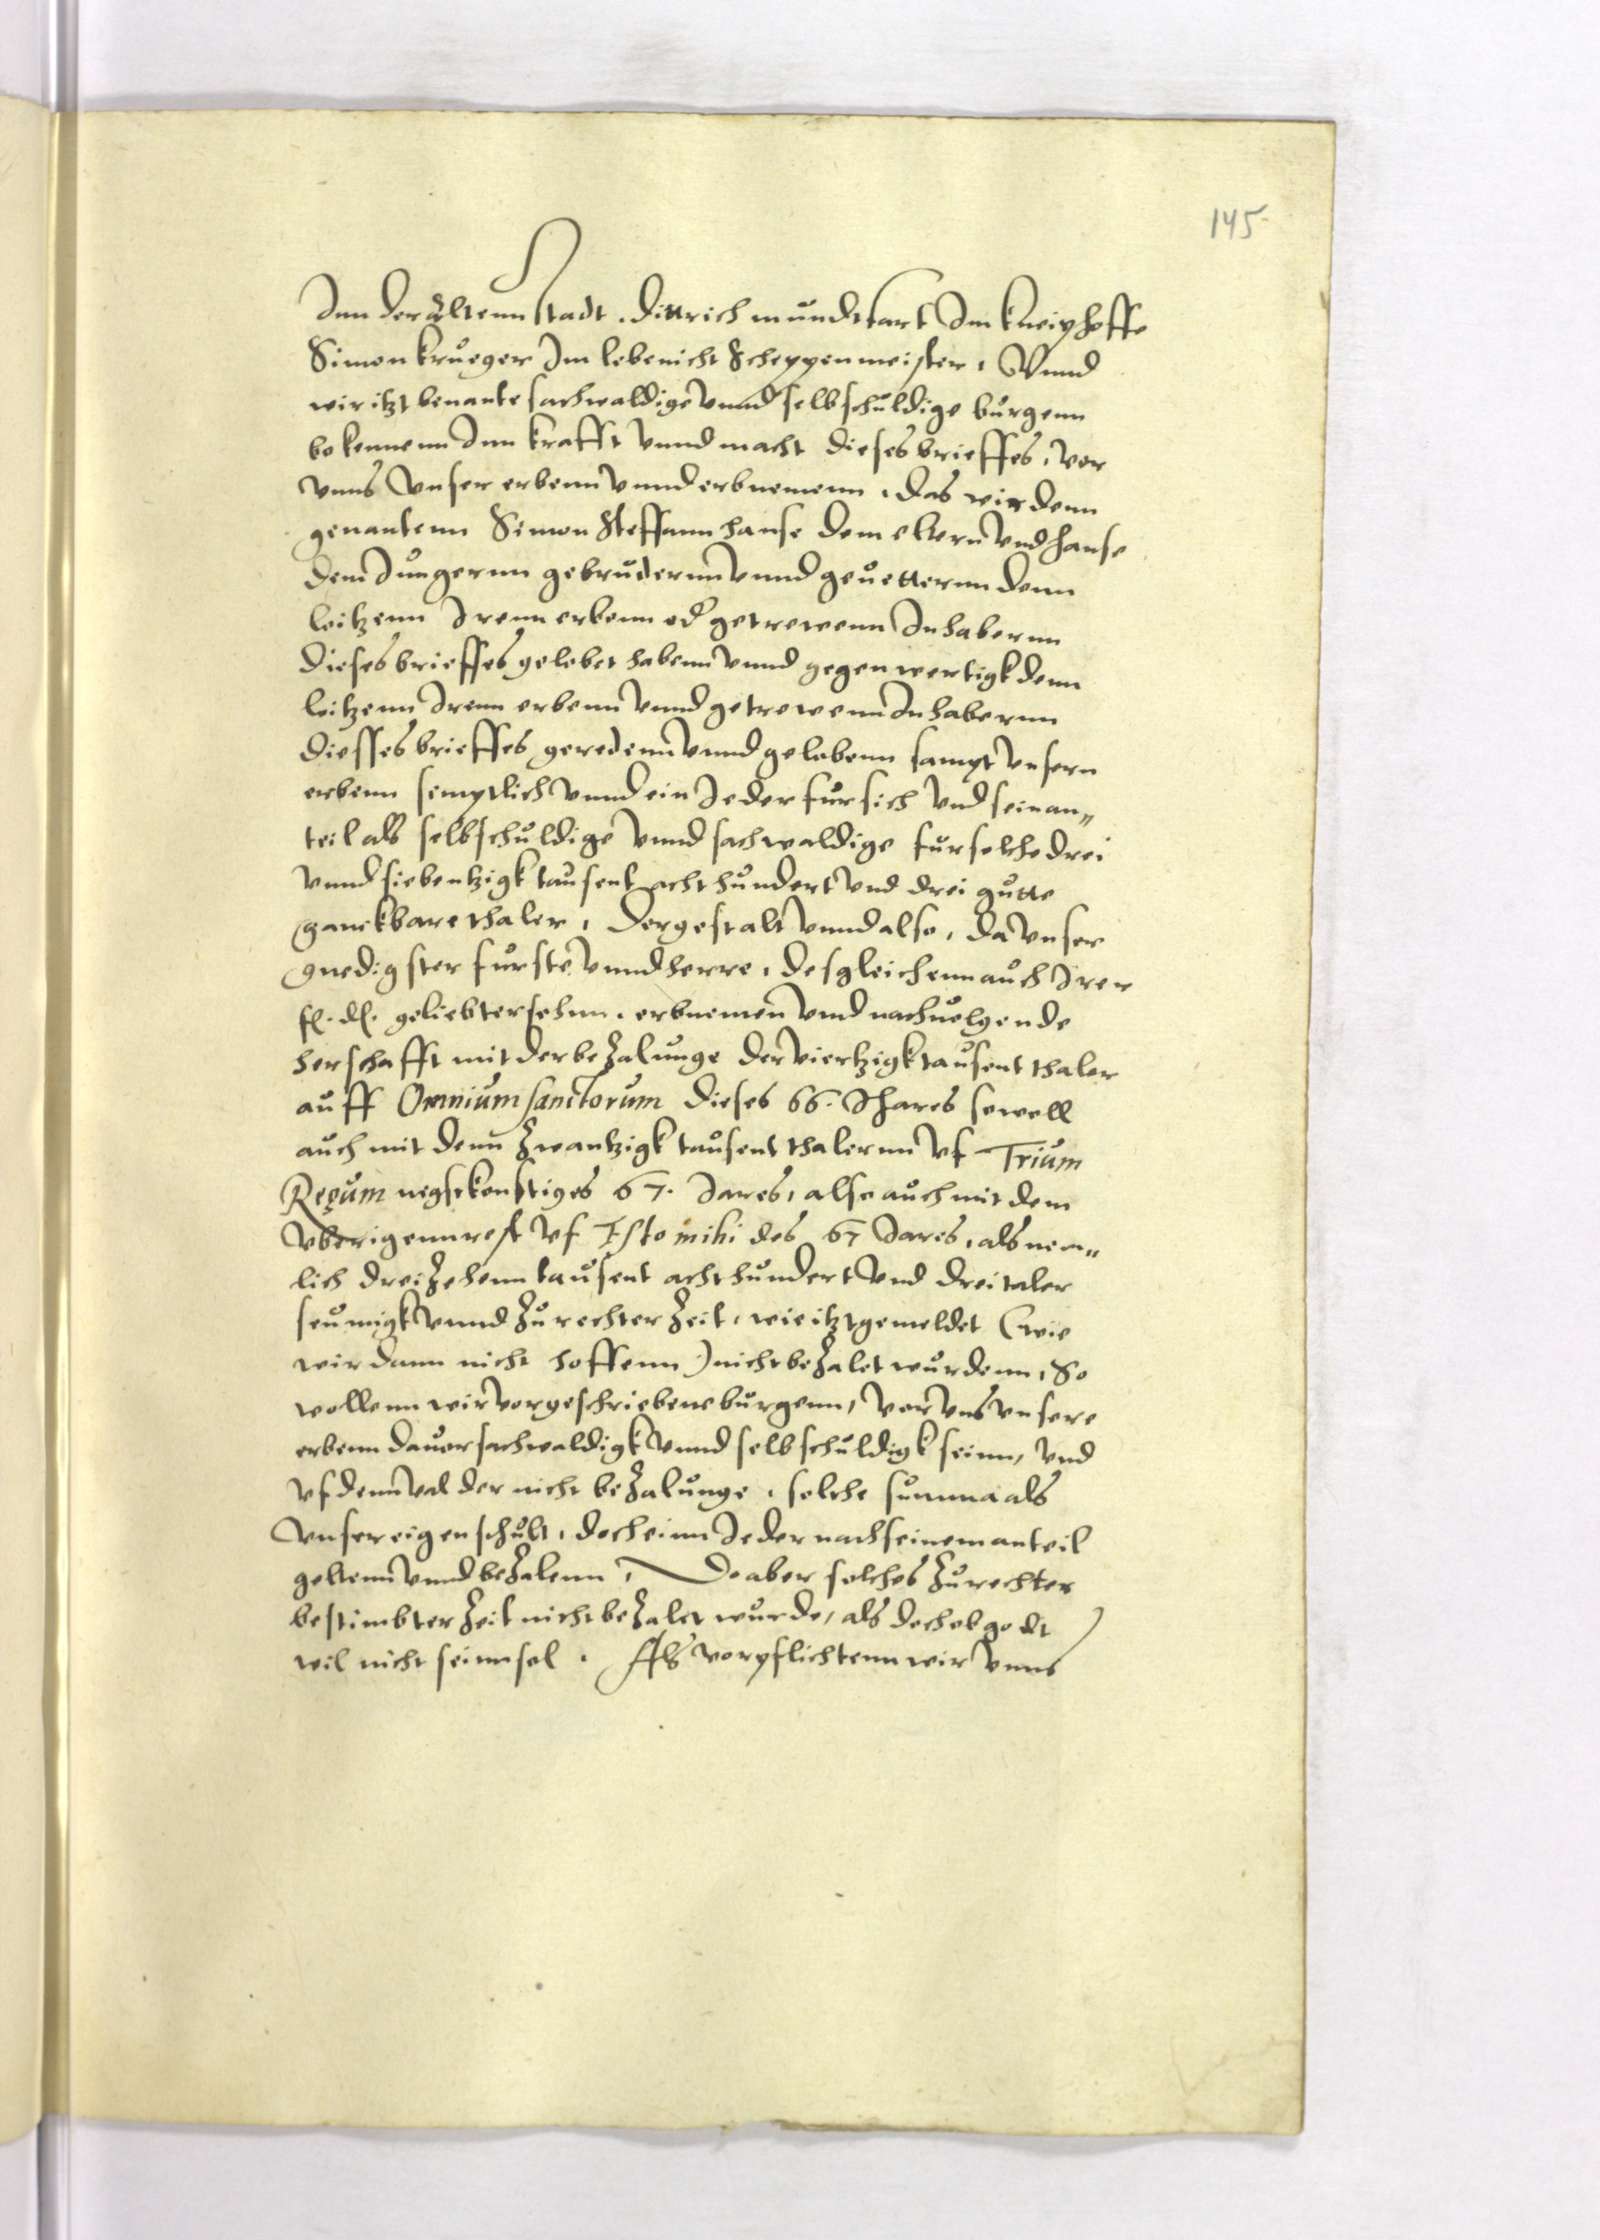 145
Inn der Altenn Stadt. Dittrich mundtfart Im kneiphoffe
Simon krueger Im lebenicht Scheppenmeister, Vnnd
wir itzt benante sachwaldige vnnd selbschuldige burgenn
bekennenn Inn krafft vnnd macht dieses brieffes, vor
vnns vnser erbenn vnnd erbnemenn, das wir denn
genantenn Simon Steffann hanse dem eltern vnd hanse
dem Jungernn gebrudernn vnnd geuetternn denn
leitzenn Irenn erbenn od getrewenn Inhabernn
dieses brieffes gelobet habenn vnnd gegenwertigk denn
leitzenn Irenn erbenn vnnd getrewenn Inhabernn
diesses brieffes geredenn vnnd gelobenn sampt vnsern
erbenn semptlich vnnd ein Jeder fur sich vnd sein an„
teil als selbschuldige vnnd sachwaldige fur solche drei
vnnd siebentzigk tausent achthundert vnd drei gutte
ganckbare thaler, dergestalt vnnd also, da vnser
gnedigster furste vnnd herre, desgleichenn auch Irer
fl. dl. geliebter sohnn. erbnemen vnnd nachuolgende
herschafft mit der bezalunge der viertzigk tausent thaler
auff Omnium sanctorum dieses 66. Jhares sowoll
auch mit denn zwantzigk tausent thalernn vf Trium
Regum negstkonftiges 67. Jares, also auch mit dem
vberigenn rest vf Esto mihi des 67 Jares, als nem„
lich dreizehenn tausent achthundert vnd drei taler
seumigk vnnd zu rechter zeit, wie itzt gemeldet (wie
wir dann nicht hoffenn) nicht bezalet wurdenn, So
wollenn wir vorgeschriebene burgenn, vor vns vnsere
erbenn dauor sachwaldigk vnnd selbschuldigk seinn, vnd
vf denn val der nicht bezalunge, solche summa als
vnser eigen schult, doch einn Jeder nach seinem anteil
geltenn vnnd bezalenn, Do aber solches zu rechter
bestimbter zeit nicht bezalet wurde, als doch ob godt
wil nicht seinn sol. Als vorpflichtenn wir vnns